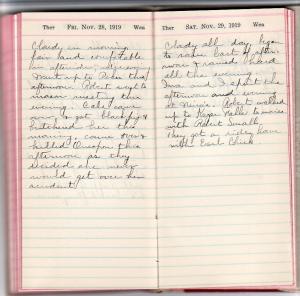 Ther FRI. NOV. 28, 1919 Wea
Cloudy in morning
fair and comfortable
in afternoon and evening
Went up to this
afternoon. Robert went to
mason meeting this
evening. came
over & got &
this
morning, came over &
killed this
afternoon as they
decided she never
would get over her
accident
Ther SAT. NOV. 29, 1919 Wea
Cloudy all day began
to rain early after-
noon & rained hard
all the evening.
and I spent the
afternoon and evening
at Robert walked
up to Falls to movies
with Robert Small.
They got a ride home
with Earl